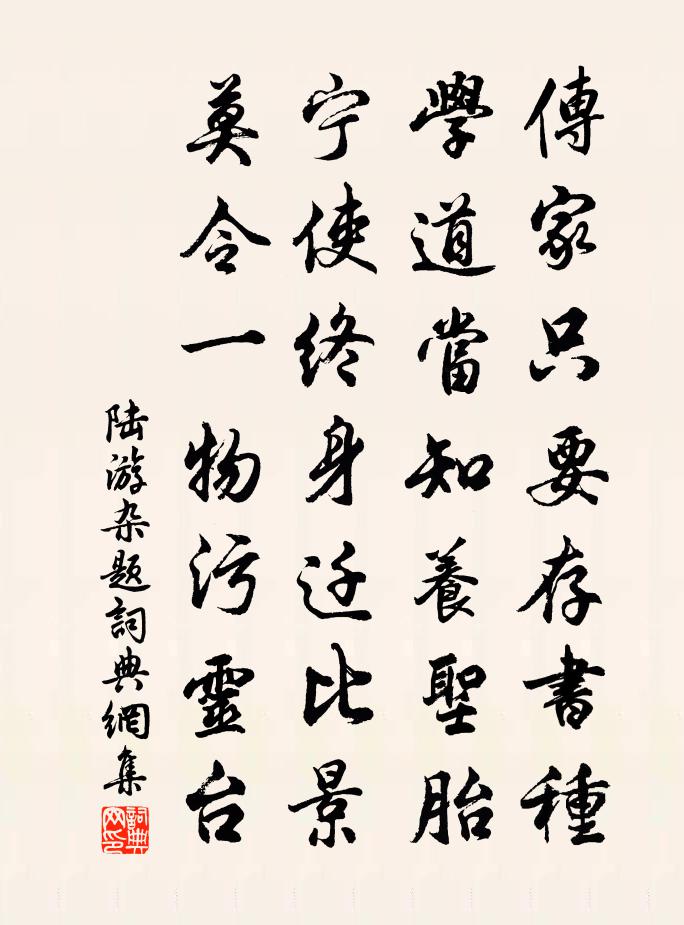 傳家只要存書種
學道當知養聖胎
宁使終身迁比景
莫令一物污靈台
陆游杂题詞典網集
詞典网印